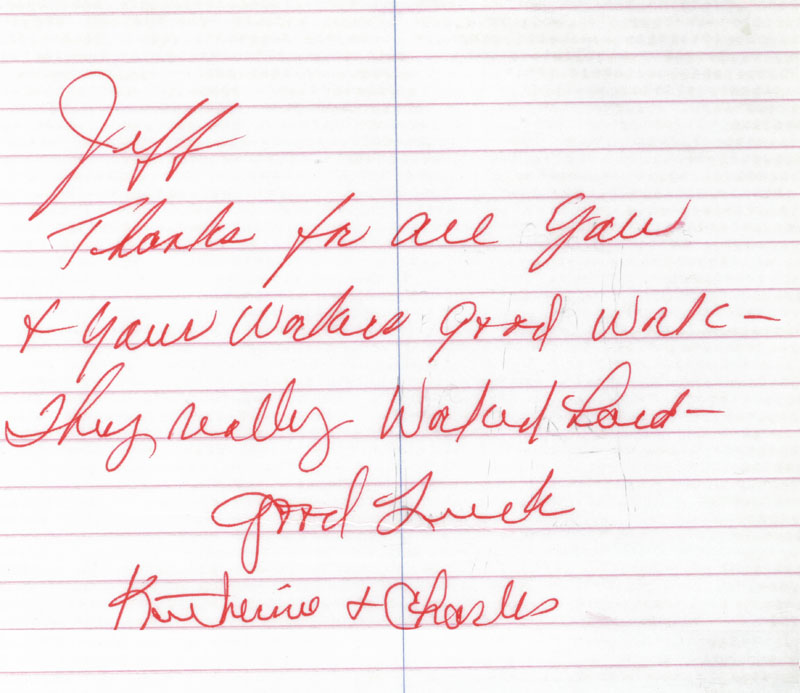 Jeff
Thanks for all you
& your workers good work -
They really worked hard -
Good Luck
Katherine & Charles